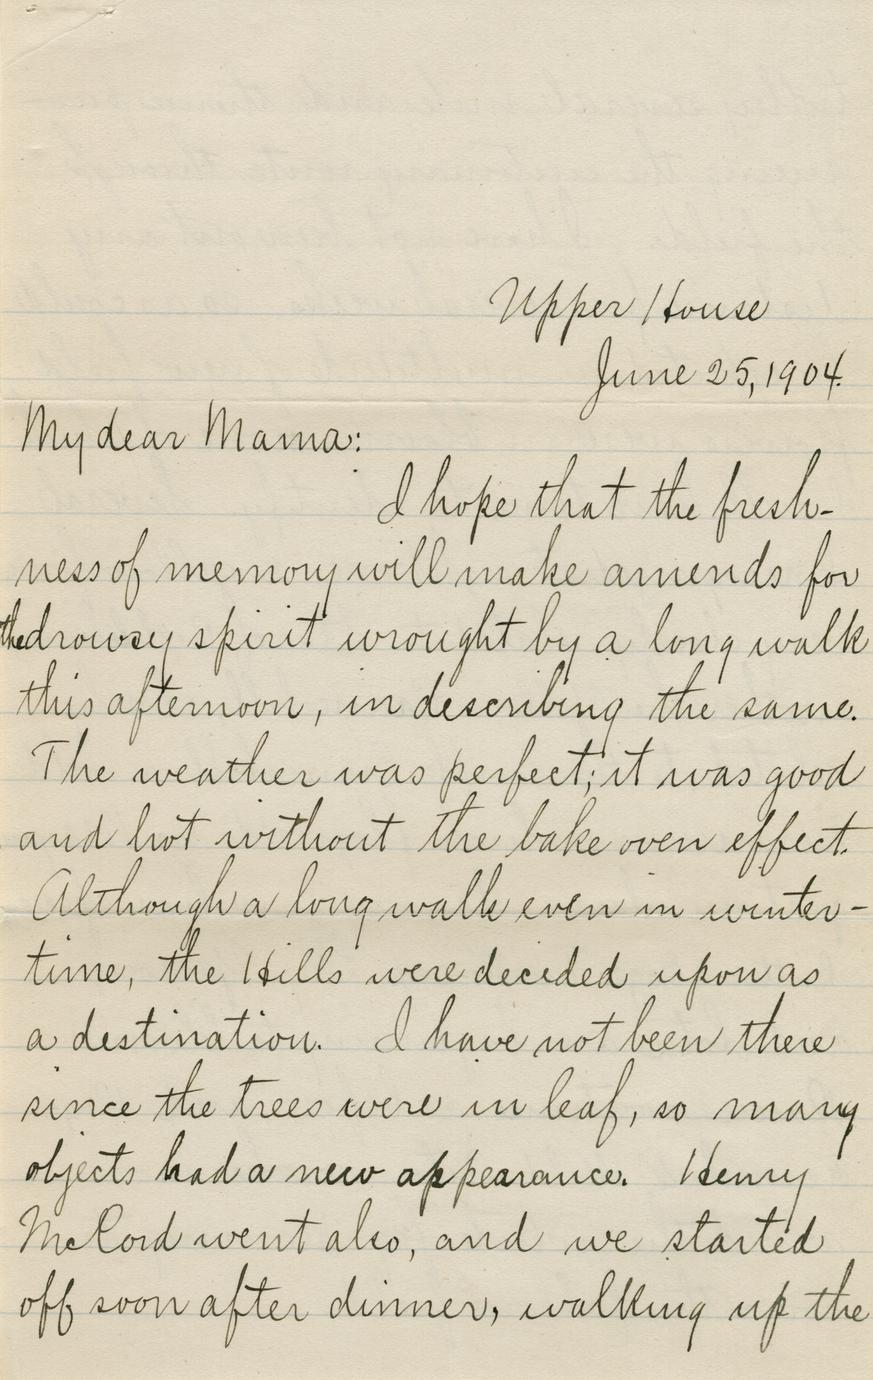 Upper House
June 25, 1904.
My dear Mama:
I hope that the fresh-
ness of memory will make amends for
the drowsy spirit wrought by a long walk
this afternoon, in describing the same.
The weather was perfect; it was good
and hot without the bake oven effect.
Although a long walk even in winter-
time, the Hills were decided upon as
a destination. I have not been there
since the trees were in leaf, so many
objects had a new appearance. Henry
McCord went also, and we started
off soon after dinner, walking up the